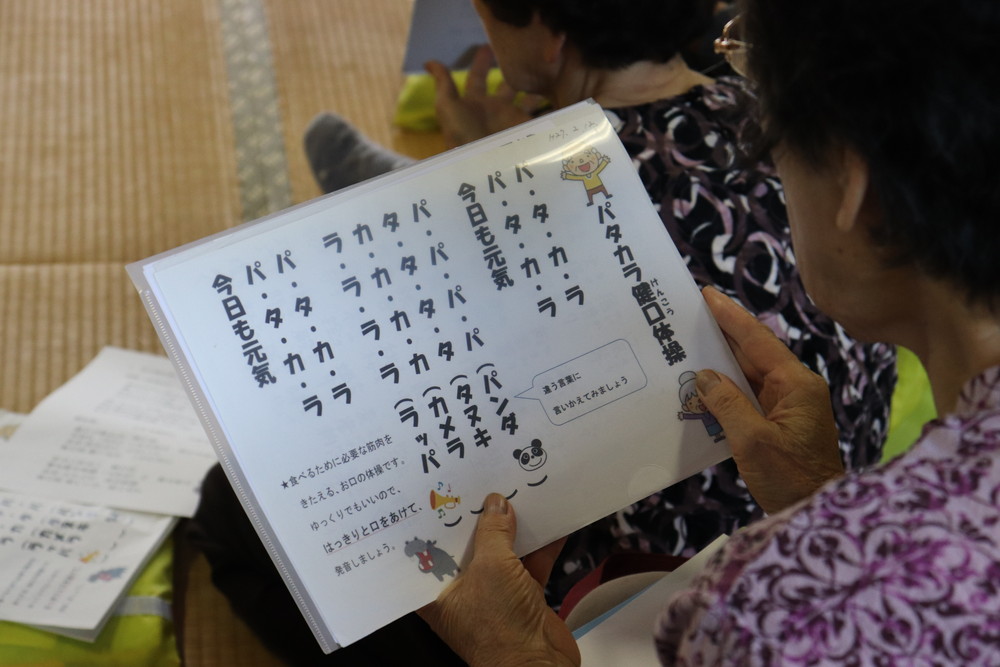 パタカラ健口体操
けんこう
パ・タ・カ・ラ
パ・タ・カ・ラ
今日も元気
パ・パ・パ・パ（パンダ
タ・タ・タ・タ（タヌキ
カ・カ・カ・カ（カメラ
ラ・ラ・ラ・ラ（ラッパ
違う言葉に
言いかえてみましょう
パ・タ・カ・ラ
パ・タ・カ・ラ
今日も元気
★食べるために必要な筋肉を
きたえる、お口の体操です。
ゆっくりでもいいので、
はっきりと口をあけて、
発音しましょう。